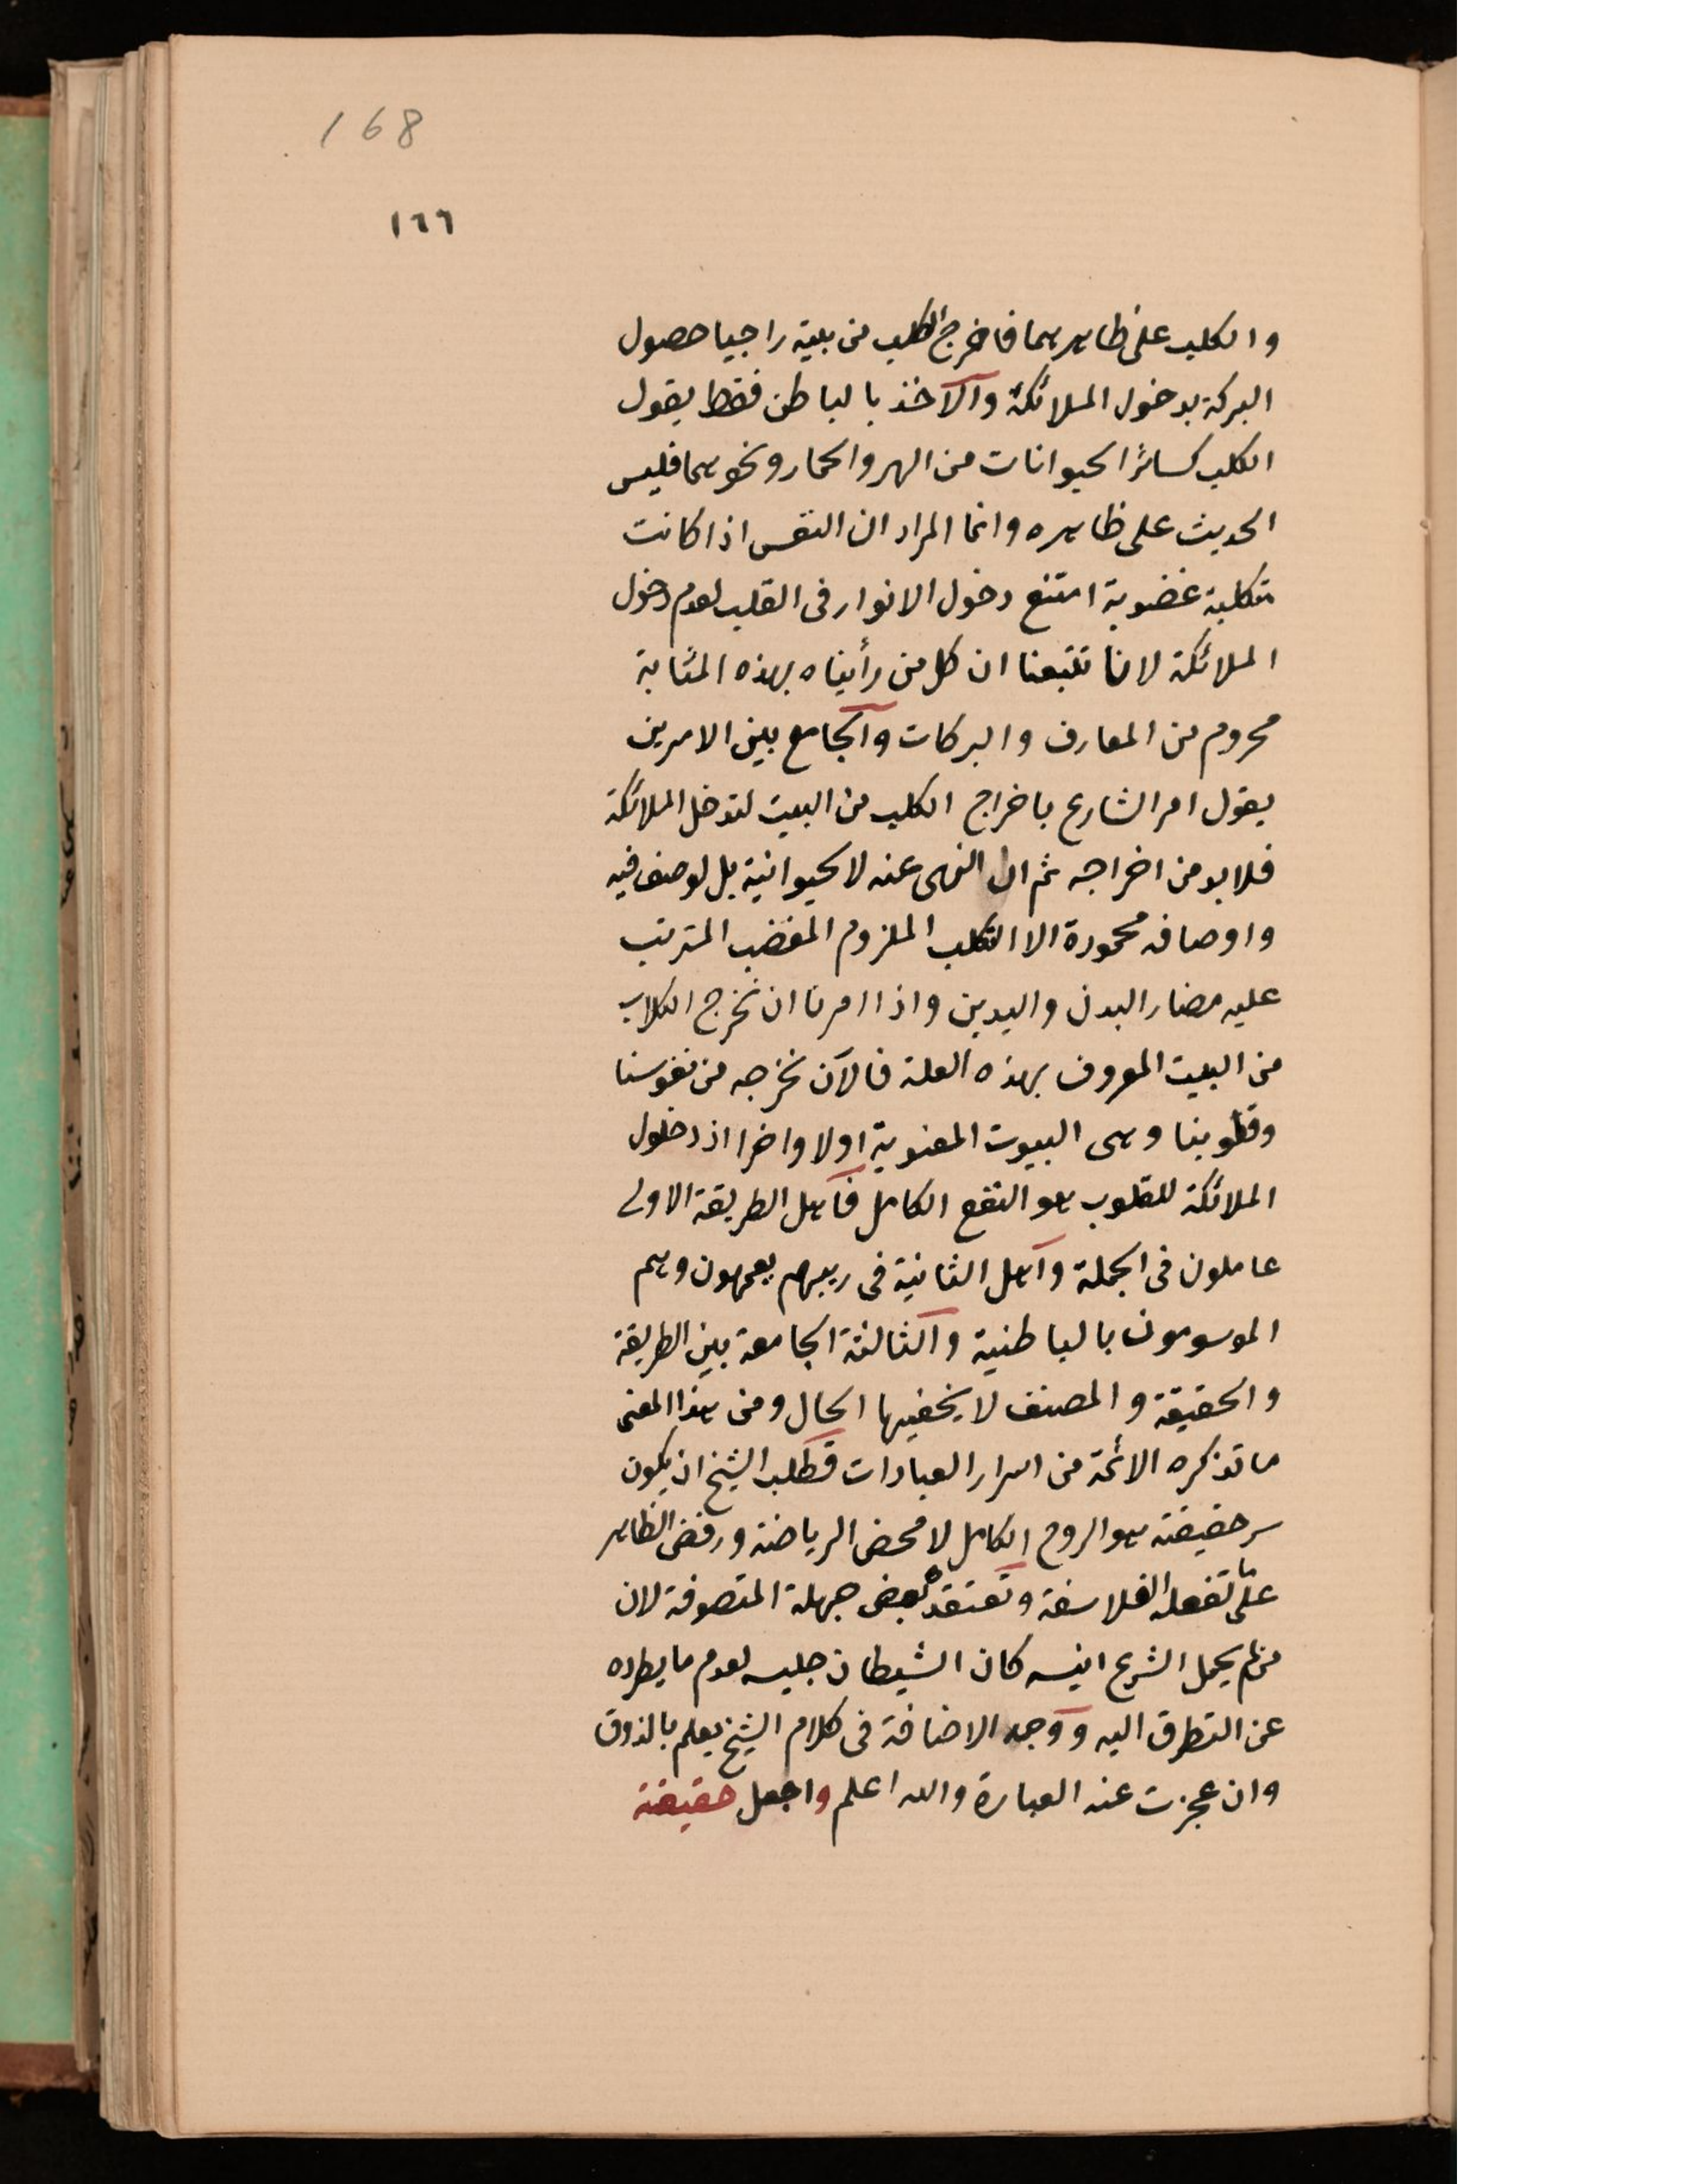 168
١٦٦
والكلب على ظاهرهما فاخرج الكلب من بيته راجيا حصول
البركة بدخول الملائكة والآخذ بالباطن فقط يقول
الكلب كسائر الحيوانات من الهر والحمار ونحوهما فليس
الحديث على ظاهره وانما المراد ان النفس اذا كانت
متكلبة غضوبة امتنع دخول الانوار فى القلب لعدم دخول
الملائكة لانا تتبعنا ان كل من رأيناه بهذه المثابة
محروم من المعارف والبركات والجامع بين الامرين
يقول امر الشارع باخراج الكلب من البيت لتدخل الملائكة
فلابد من اخراجه ثم ان النهى عنه لا لحيوانية بل لوصف فيه
واوصافه محمودة الا التكلب الملزوم الغضب المترتب
عليه مضار البدن والدين واذا امرنا ان نخرج الكلاب
من البيت المعروف بهذه العلة فالآن نخرجه من نفوسنا
وقلوبنا وهى البيوت المعنوية اولا واخرا اذ دخول
الملائكة للقلوب هو النفع الكامل فاهل الطريقة الاولى
عاملون فى الجملة واهل الثانية فى ريبهم يعمهون وهم
الموسومون بالباطنية والثالثة الجامعة بين الطريقة
والحقيقة والمصنف لا يخفيها الحال ومن هذا المعنى
ما تذكره الائمة من اسرار العبادات فطلب الشيخ ان يكون
سر حقيقته هو الروح الكامل لا محض الرياضة ورفض الظاهر
على ما تفعله الفلاسفة وتعتقده بعض جهلة المتصوفة لان
من لم يجعل الشرع انيسه كان الشيطان جليسه لعدم ما يطرده
عن التطرق اليه ووجه الاضافة فى كلام الشيخ يعلم بالذوق
وان عجزت عنه العبارة والله اعلم واجعل حقيقته